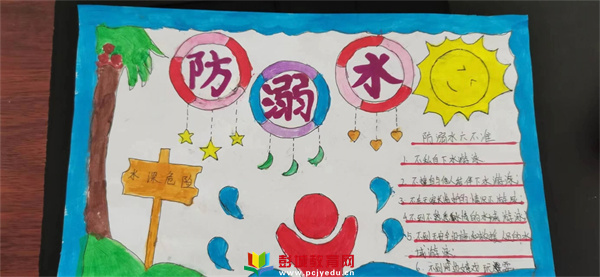 防溺水
水深危险
防溺水六不准
1、不私自下水游泳
2、不擅自与他人结伴下水游泳;
3、不在无家长带领的情况下游泳
4、不到不熟悉的水域游泳;
5、不到无安全设施和救援人员的水
域游泳
6、不到
彭城教育网
www.pcjyedu.cn